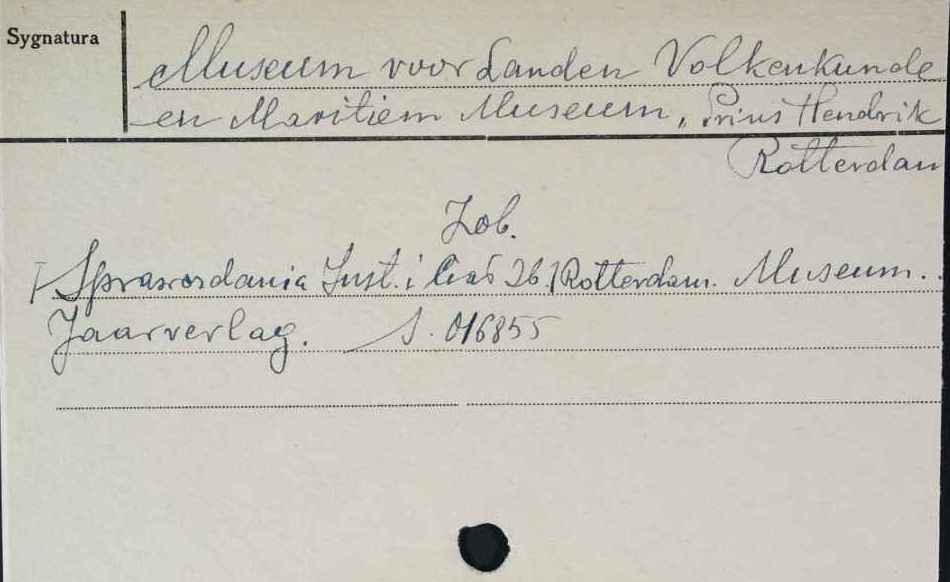 Sygnatura
Museum voor Landen Volkenkunde
en Maritiem Museum, Prins Hendrik
Rotterdam
Zob.
Sprawozdania Inst. i 26 Rotterdam. Museum.
Jaarverlag. S. 016855